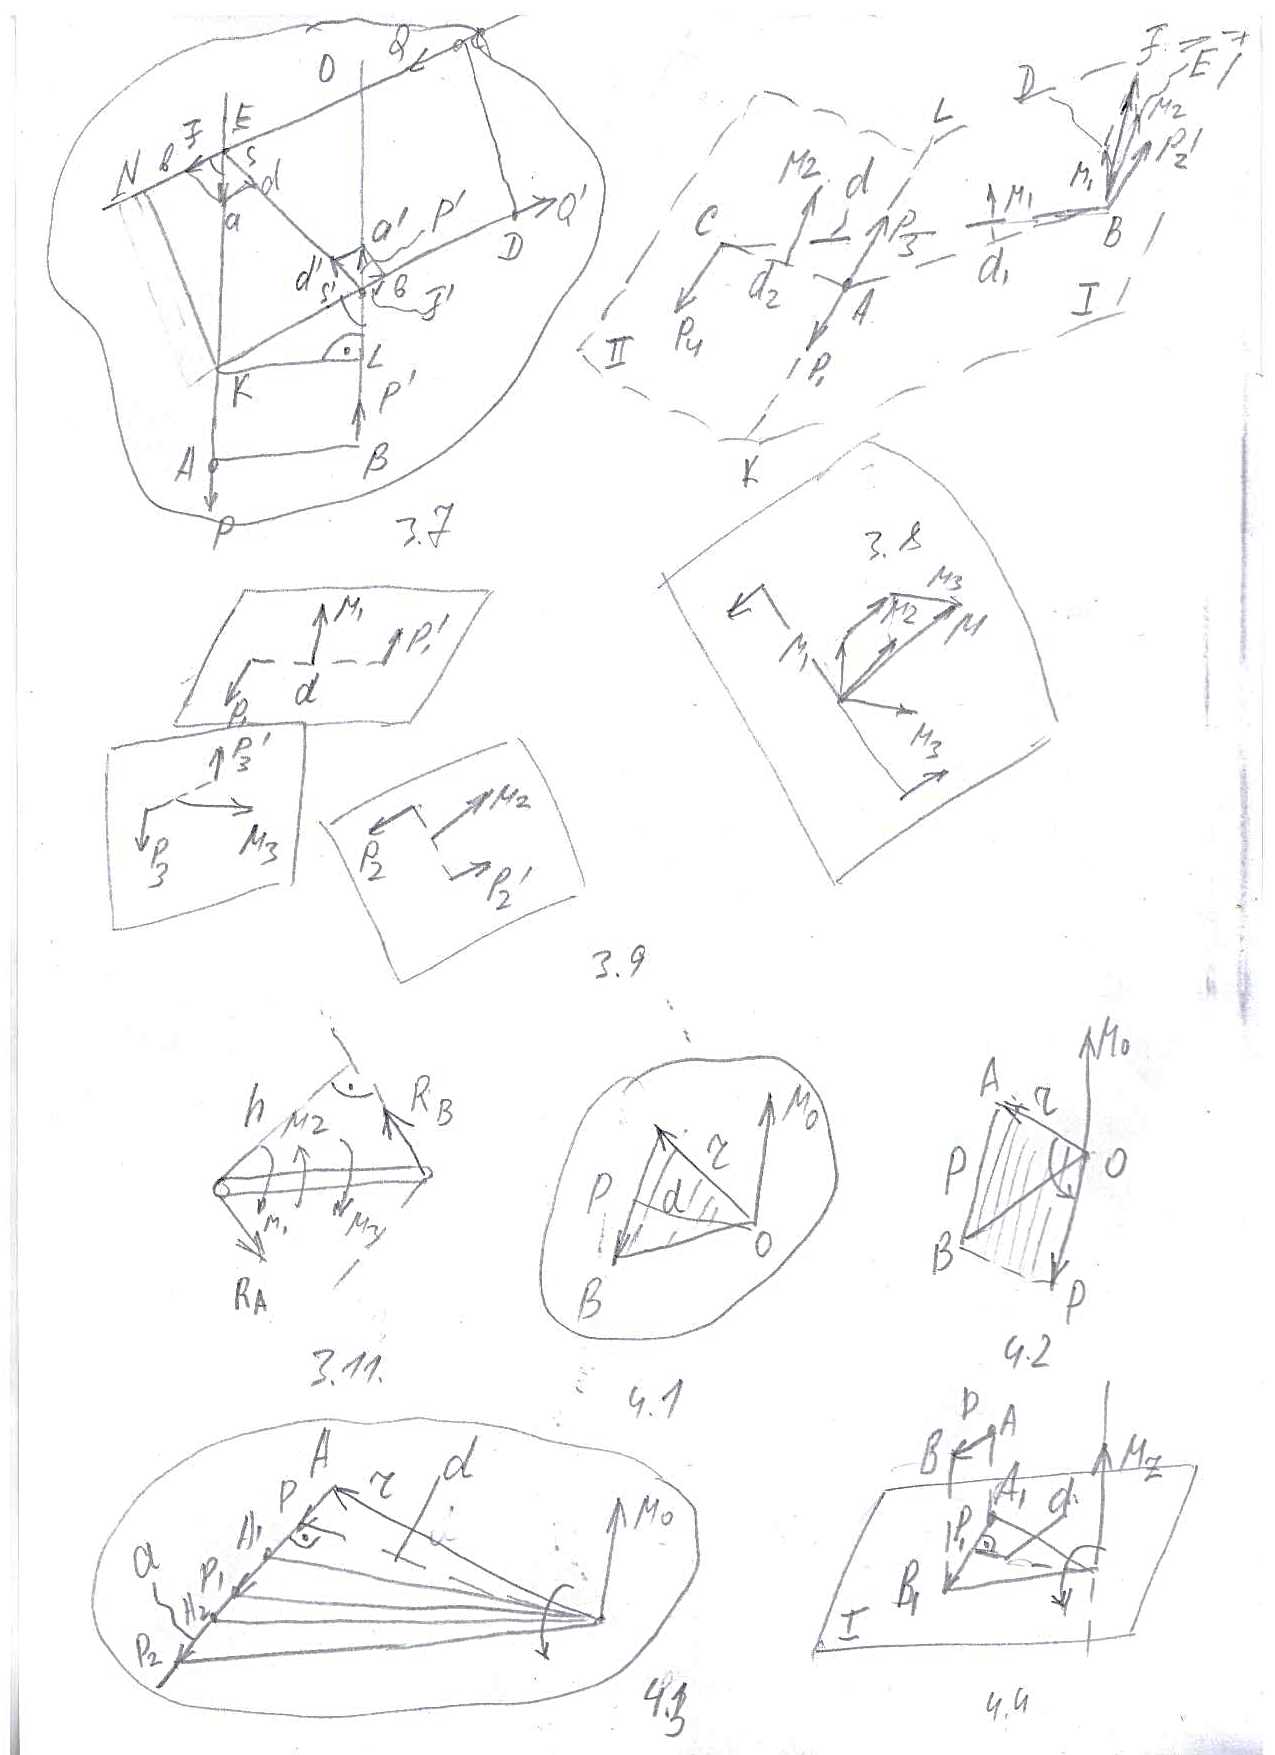 Q
O
E
F
N
в
S
d
a
a'
P'
d'
S'
в
F'
D
Q'
K
L
P'
A
B
P
3.7
L
D
F
E
M2
M2
d
P2'
C
P3
M1
M1
B
d2
A
d1
P4
P1
I
II
K
3.8
M1
d
P1'
P1
P3'
P3
M3
P2
M2
P2'
M3
M2
M1
M
M3
3.9
h
M2
RB
M1
M3
RA
3.11.
M0
r
P
d
O
B
4.1
M0
A
r
P
O
B
P
4.2
A
P
r
d
A1
M0
a
P1
A2
P2
4.3
P
A
B
Mz
A1
d
P1
B1
I
4.4